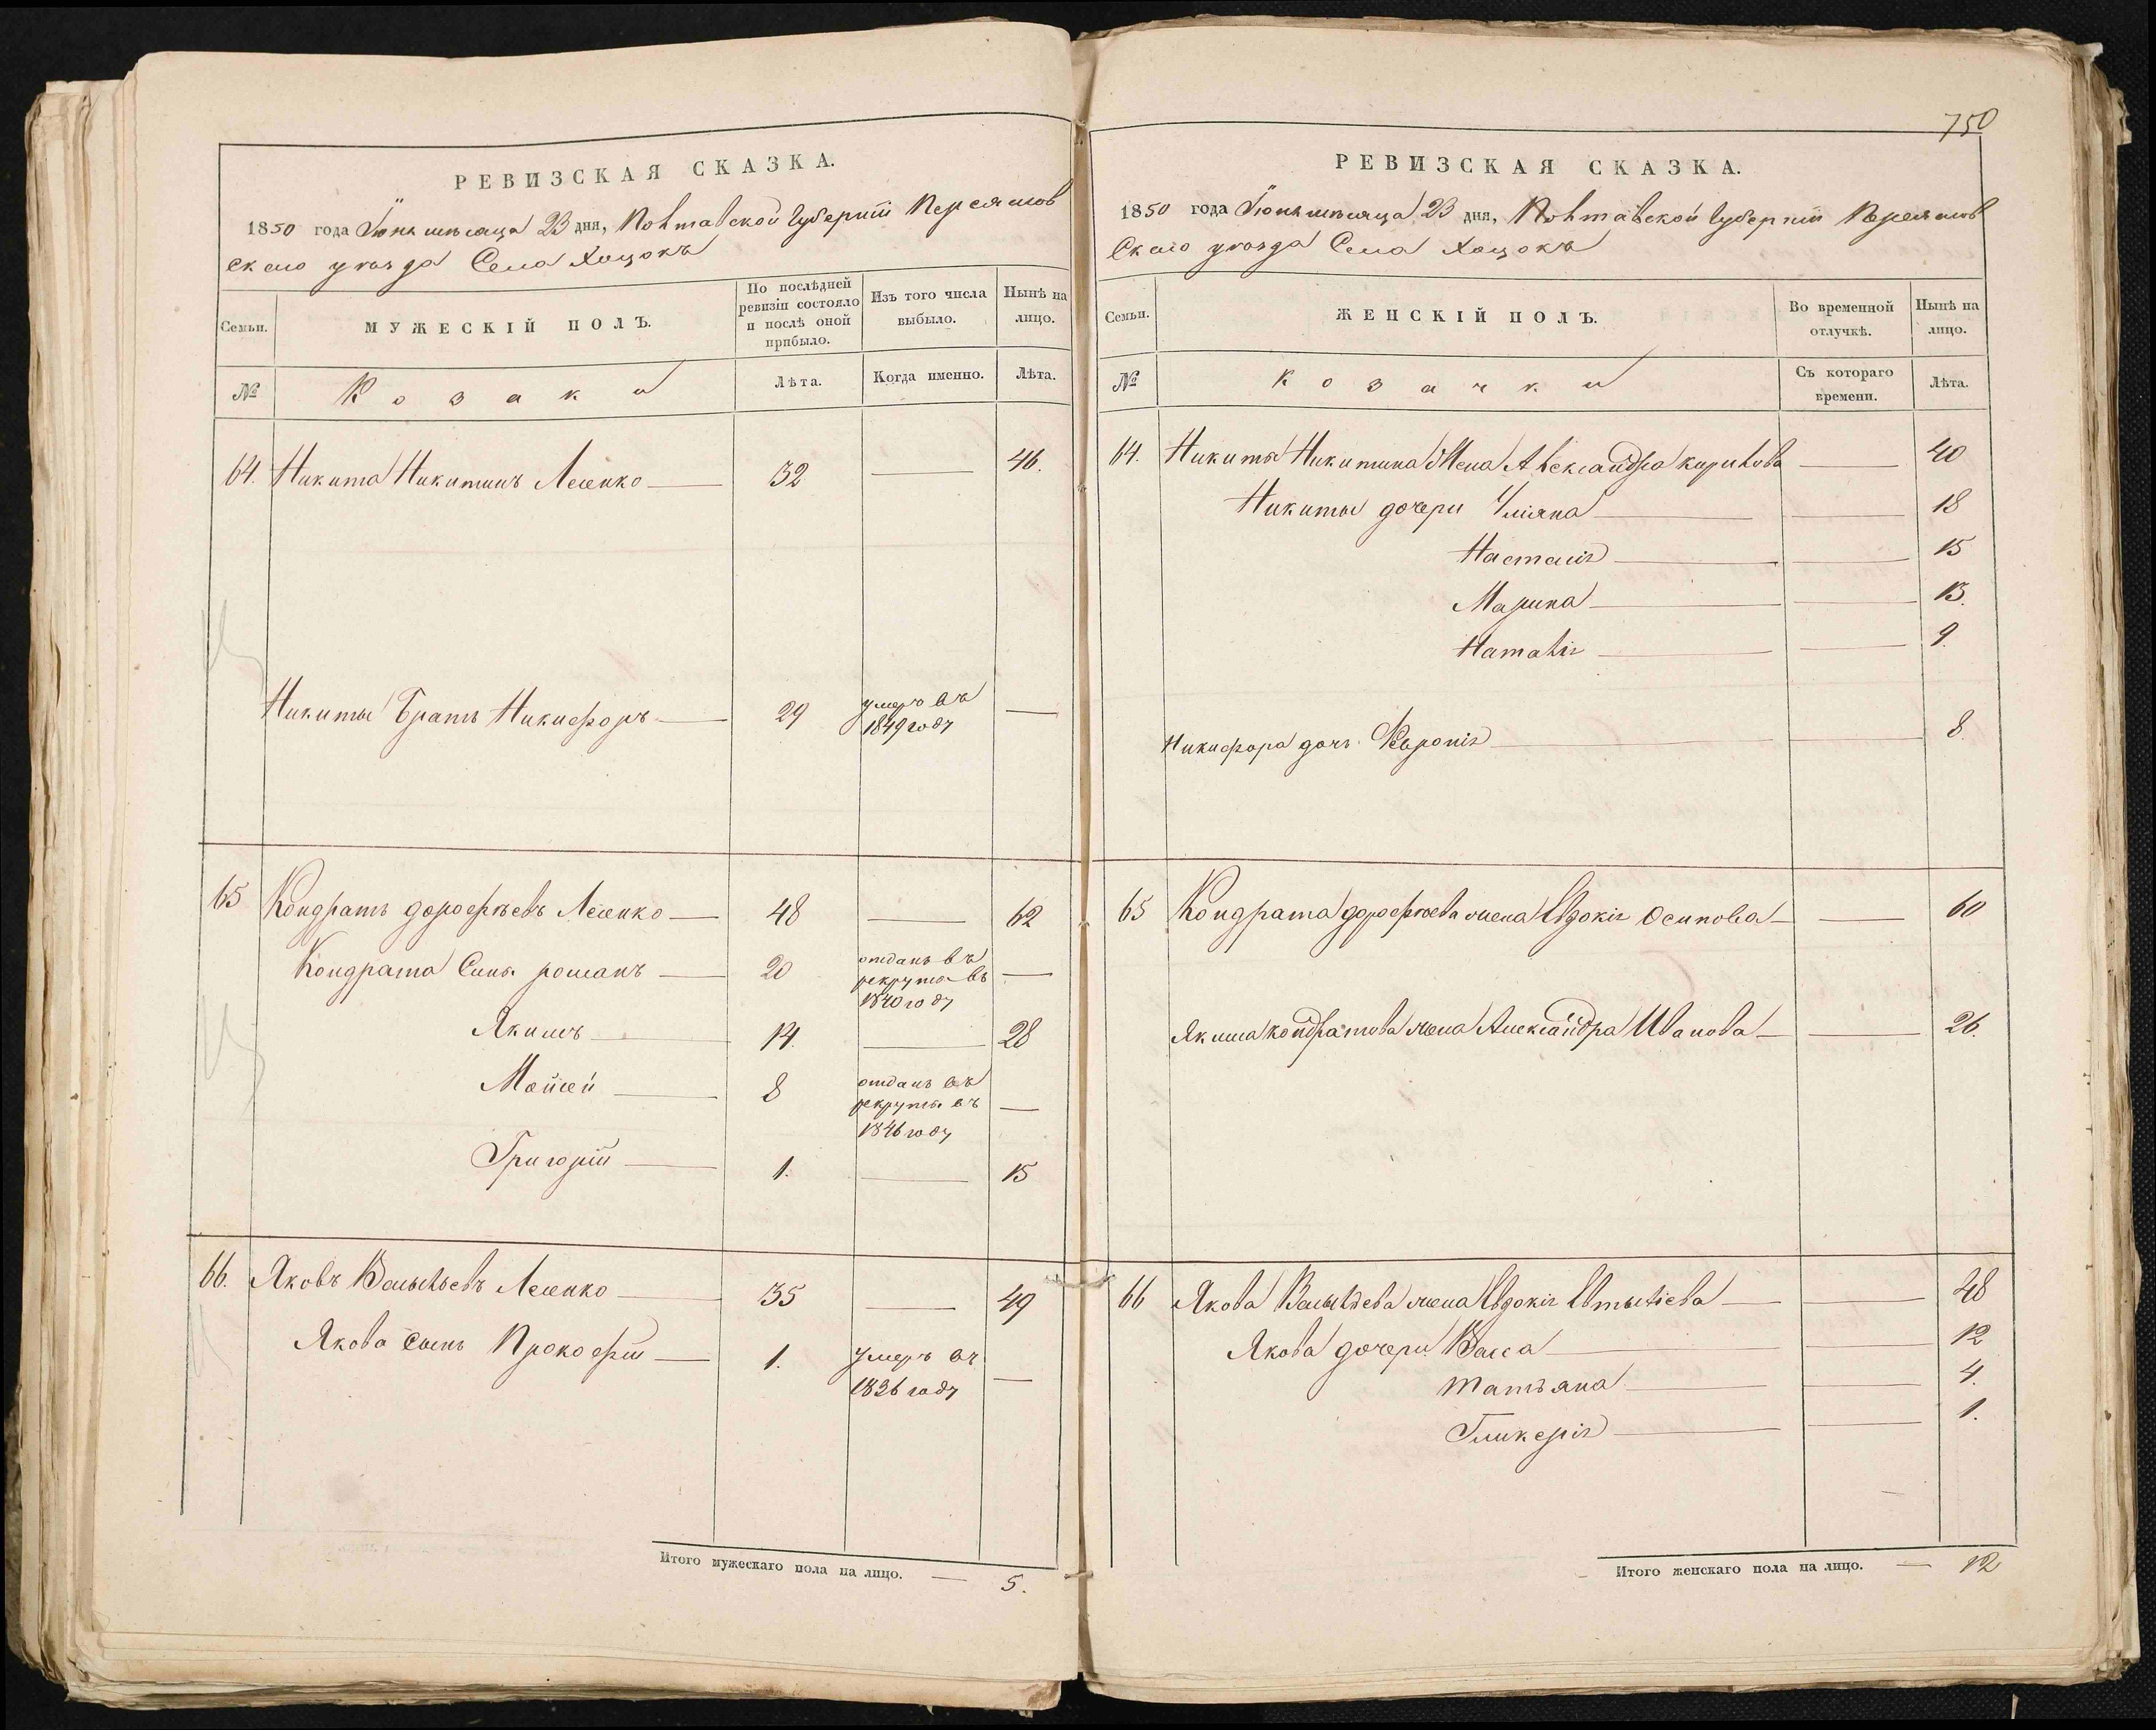 РЕВИЗСКАЯ СКАЗКА.
1850 года Іюня мѣсяца 23 дня, Полтавской Губерніи Переяслов
скаго уѣзда Села Хоцокъ
Семьи.
МУЖЕСКІЙ ПОЛЪ.
По послѣдней
ревизіи состояло
и послѣ оной
прибыло.
Изъ того числа
выбыло.
Нынѣ на
лицо.
№
Козаки
Лѣта.
Когда именно.
Лѣта.
64. Никита Никитинъ Лесенко — 32 — 46.
Никиты Братъ Никифоръ — 29 умеръ въ —
1849 году
65 Кондратъ дорофѣевъ Лесенко — 48 — 62
Кондрата Сынъ романъ — 20 отданъ въ —
рекруты въ
1840 году
Якимъ — 14. — 28
Мойсей — 8 отданъ въ —
рекруты въ
1846 году
Григорій — 1. — 15
66. Яковъ Васильевъ Лесенко — 35 — 49
Якова сынъ Прокофій — 1. умеръ въ —
1836 году
Итого мужескаго пола на лицо. — 5.
750
РЕВИЗСКАЯ СКАЗКА.
1850 года Іюня мѣсяца 23 дня, Полтавской Губерніи Переяслов
скаго уѣзда Села Хоцокъ
Семьи.
ЖЕНСКІЙ ПОЛЪ.
Во временной
отлучкѣ.
Нынѣ на
лицо.
№
Козачки
Съ котораго
времени.
Лѣта.
64. Никиты Никитина Жена Александра кирилова — 40
Никиты дочери Уліяна — 18
Настасія — 15
Марина — 13.
Наталія — 9.
Никифора дочь Февронія — 8.
65 Кондрата дорофѣева жена Евдокія Осипова — 60
Якима кондратова жена Александра Иванова — 26.
66 Якова Васильева жена Евдокія Евтыхіева — 48
Якова дочери Васса — 12
Татьяна — 4.
Гликерія — 1.
Итого женскаго пола на лицо. — 12